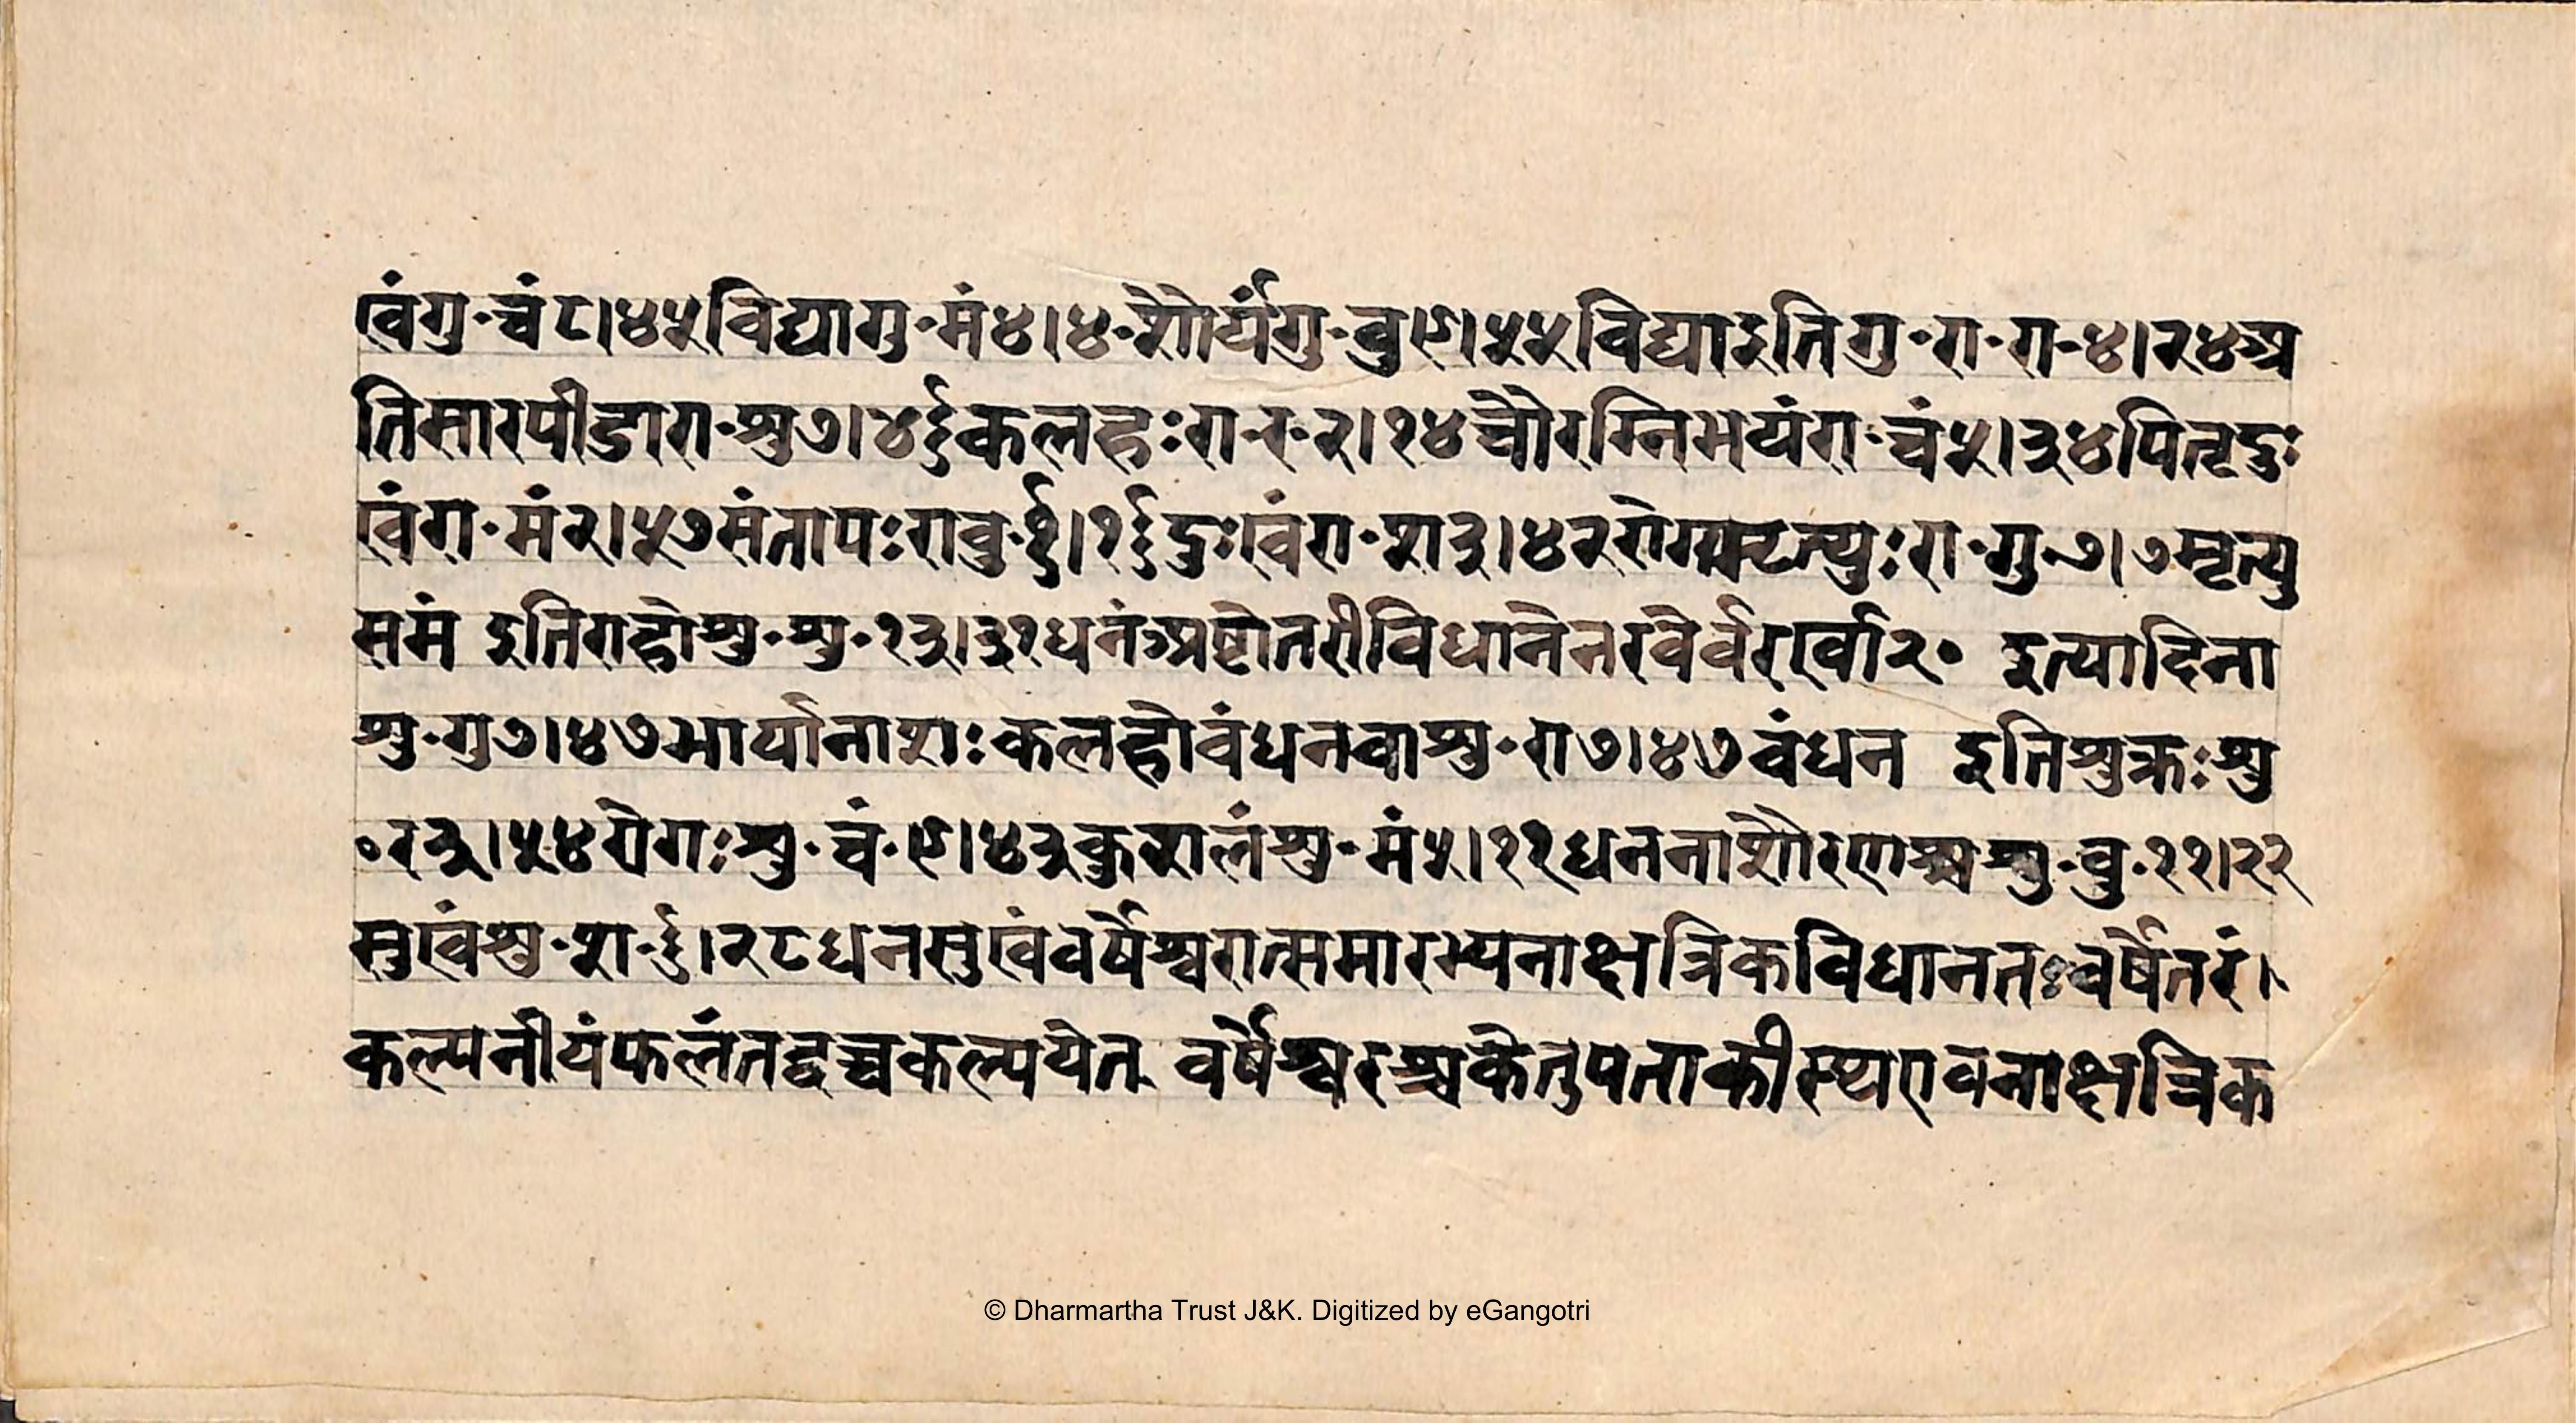 खंगु॰चं८।४५विद्यागु॰मं४।४॰शौर्यंगु॰बु९।५५विद्याइतिगु॰रा॰रा॰४।२४अ
तिसारपीडारा॰शु७।४६कलहःरा॰र॰२।१४चौरग्निभयंरा॰चं५।३४पितृदुः
खंरा॰मं२।५७संतापःराबु॰१।१६दुःखंरा॰श३।४२रो रा॰गु॰७।७मृत्यु
समं इतिराहोशु॰शु॰१३।३१धनंअष्टोतरीविधानेनरवेर्व २० इत्यादिना
शु॰गु७।४७भार्यानाशःकलहोवंधनवाशु॰रा७।४७वंधन इतिशुक्रःशु
॰र३।५४रोगःशु॰चं॰९।४३कुशलंशु॰मं५।११धननाशो शु॰बु॰११।२२
सुखंशु॰श॰६।२८धनसुखंवर्षेश्वरात्समारभ्यनाक्षत्रिकविधानतःवर्षेतरं।
कल्पनीयंफलंतद्वच्चकल्पयेत् वर्षेश्वरश्चकेतुपताकीस्थएवनाक्षत्रिक
© Dharmartha Trust J&K. Digitized by eGangotri